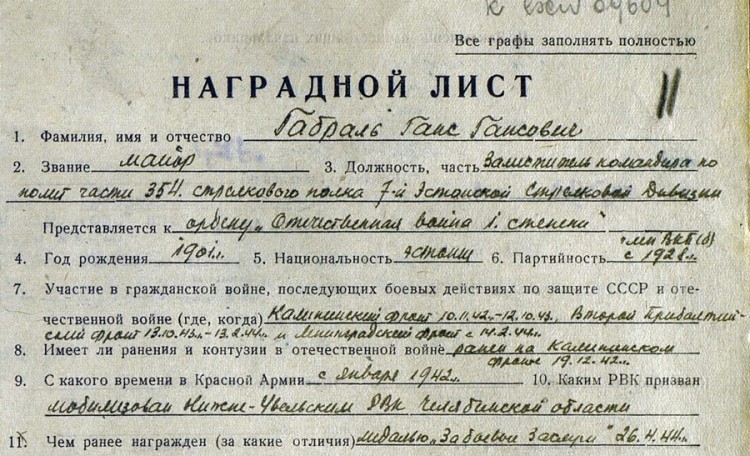 к вхш 04604
Все графы заполнять полностью
НАГРАДНОЙ ЛИСТ
11
1. Фамилия, имя и отчество Габраль Ганс Гансович
2. Звание майор 3. Должность, часть Заместитель командира по
полит части 354. стрелкового полка 7-й Эстонской Стрелковой Дивизии
Представляется к ордену „Отечественная война 1. степени"
4. Год рождения 1901г. 5. Национальность эстонец 6. Партийность чл ВКП(б) с 1928г.
7. Участие в гражданской войне, последующих боевых действиях по защите СССР и оте-
чественной войне (где, когда) Калининский фронт 10.11.42-12.10.43. Второй Прибалтий-
ский фронт 13.10.43г.-13.2.44г. и Ленинградский фронт с 14.2.44г.
8. Имеет ли ранения и контузии в отечественной войне ранен на Калининском
фронте 19.12.42г.
9. С какого времени в Красной Армии с января 1942г. 10. Каким РВК призван
мобилизован Нижне-Увельским РВК Челябинской области
11. Чем ранее награжден (за какие отличия) медалью „За боевые Заслуги" 26.4.44г.